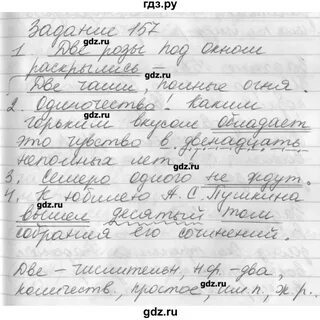 гдз.ру
Задание 157
1. Две розы под окном
раскрылись –
Две чаши, полные огня.
2. Одиночество! Каким
горьким вкусом обладает
это чувство в двенадцать
неполных лет.
3. Семеро одного не ждут.
4. К юбилею А.С. Пушкина
вышел десятый том
собрания его сочинений.
Две – числительн, н.ф. – два,
количеств, простое, им.п., ж.р..
gdz.ru
gdz.ru
gdz.ru
gdz.ru
gdz.ru
gdz.ru
gdz.ru
gdz.ru